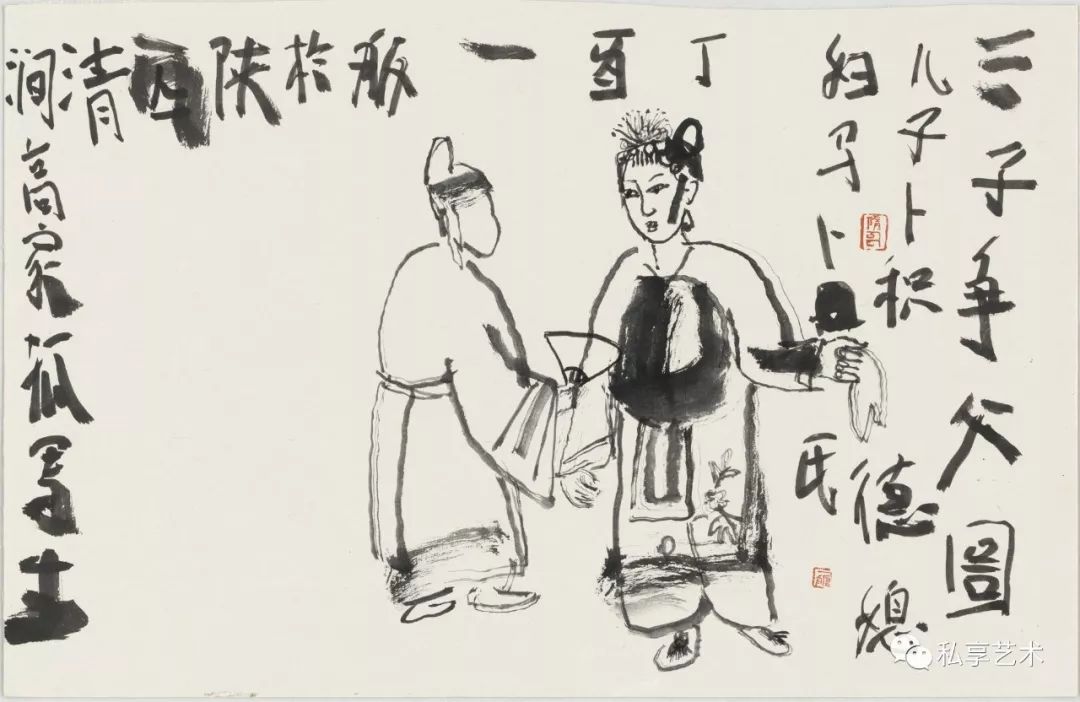 三子争父圖
儿子卜积德
妇卜氏
丁酉一舨於陕西清
涧高家写生
私享艺术